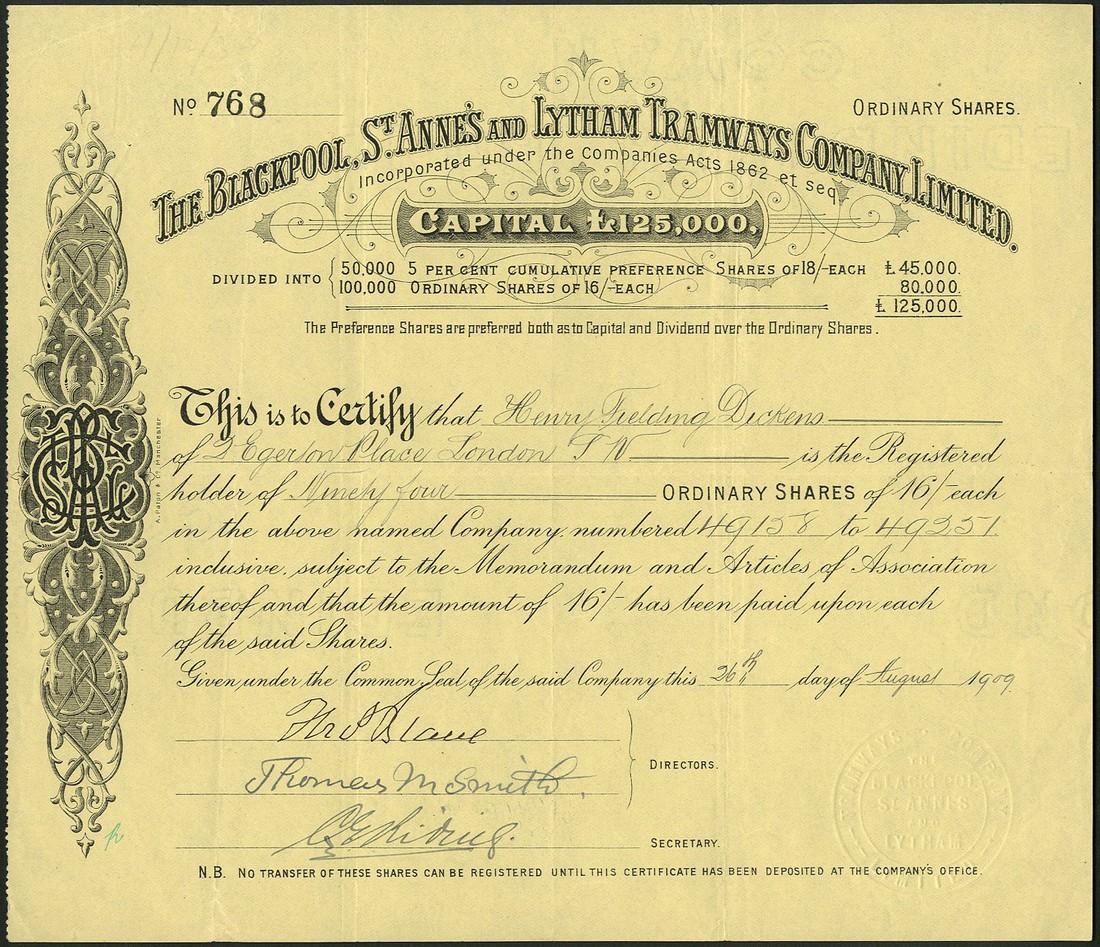 No 768
ORDINARY SHARES.
THE BLACKPOOL, ST ANNE'S AND LYTHAM TRAMWAYS COMPANY, LIMITED.
Incorporated under the Companies Acts 1862 et seq
CAPITAL £125,000.
DIVIDED INTO { 50,000 5 PER CENT CUMULATIVE PREFERENCE SHARES OF 18/- EACH £45,000.
100,000 ORDINARY SHARES OF 16/- EACH 80.000.
£ 125,000.
The Preference Shares are preferred both as to Capital and Dividend over the Ordinary Shares.
This is to Certify that Henry Fielding Dickens
of 2 Egerton Place London S W is the Registered
holder of Ninety four ORDINARY SHARES of 16/- each
in the above named Company, numbered 49158 to 49251
inclusive, subject to the Memorandum and Articles of Association
thereof and that the amount of 16/- has been paid upon each
of the said Shares.
Given under the Common Seal of the said Company this 26th day of August 1909.
Thomas M Smith.
DIRECTORS.
SECRETARY.
N.B. NO TRANSFER OF THESE SHARES CAN BE REGISTERED UNTIL THIS CERTIFICATE HAS BEEN DEPOSITED AT THE COMPANY'S OFFICE.
A. Paton & Co. Manchester
TRAMWAYS COMPANY
THE
BLACKPOOL
ST ANNES
AND
LYTHAM
LIMITED